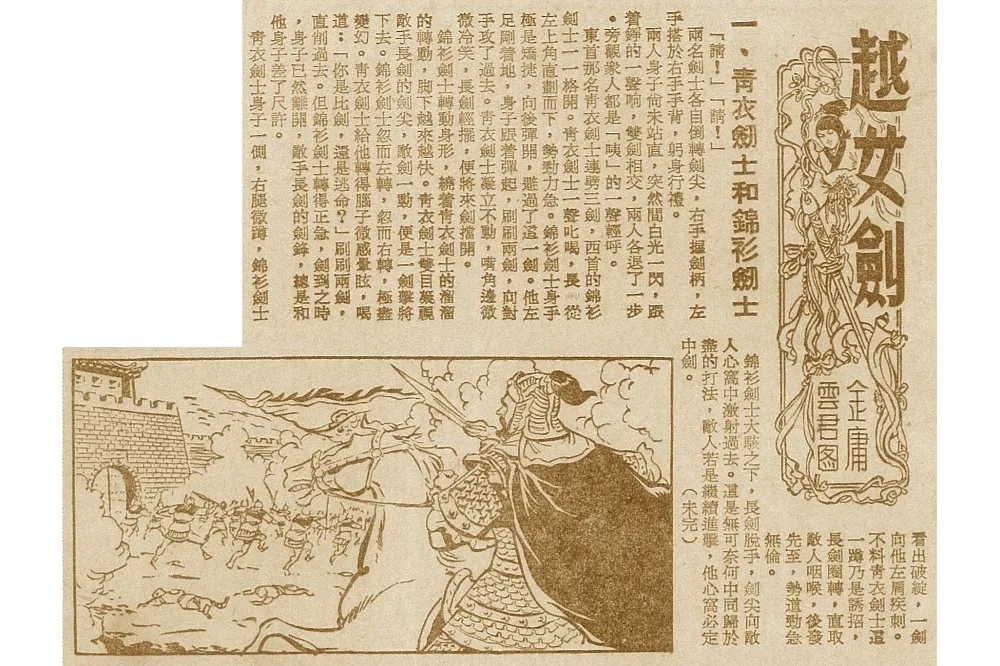 越女劍
金庸
雲君图
一、青衣劍士和錦衫劍士
「請！」「請！」
兩名劍士各自倒轉劍尖，右手握劍柄，左
手搭於右手手背，躬身行禮。
兩人身子尚未站直，突然間白光一閃，跟
着錚的一聲响，雙劍相交，兩人各退了一步
。旁觀衆人都是「咦」的一聲輕呼。
東首那名青衣劍士連劈三劍，西首的錦衫
劍士一一格開。青衣劍士一聲叱喝，長劍從
左上角直劃而下，勢勁力急。錦衫劍士身手
極是矯捷，向後彈開，避過了這一劍。他左
足剛着地，身子跟着彈起，刷刷兩劍，向對
手攻了過去。青衣劍士凝立不動，嘴角邊微
微冷笑，長劍輕擺，便將來劍擋開。
錦衫劍士轉動身形，繞着青衣劍士的溜溜
的轉動，脚下越來越快。青衣劍士雙目凝視
敵手長劍的劍尖，敵劍一動，便是一劍擊將
下去。錦衫劍士忽而左轉，忽而右轉，極盡
變幻。青衣劍士給他轉得腦子微感暈眩，喝
道：「你是比劍，還是逃命？」刷刷兩劍，
直削過去。但錦衫劍士轉得正急，劍到之時
，身子已然離開，敵手長劍的劍鋒，總是和
他身子差了尺許。
青衣劍士身子一側，右腿微蹲，錦衫劍士
看出破綻，一劍
向他左肩疾刺。
不料青衣劍士這
一蹲乃是誘招，
長劍圈轉，直取
敵人咽喉，後發
先至，勢道勁急
無倫。
錦衫劍士大駭之下，長劍脫手，劍尖向敵
人心窩中激射過去。這是無可奈何中同歸於
盡的打法，敵人若是繼續進擊，他心窩必定
中劍。（未完）